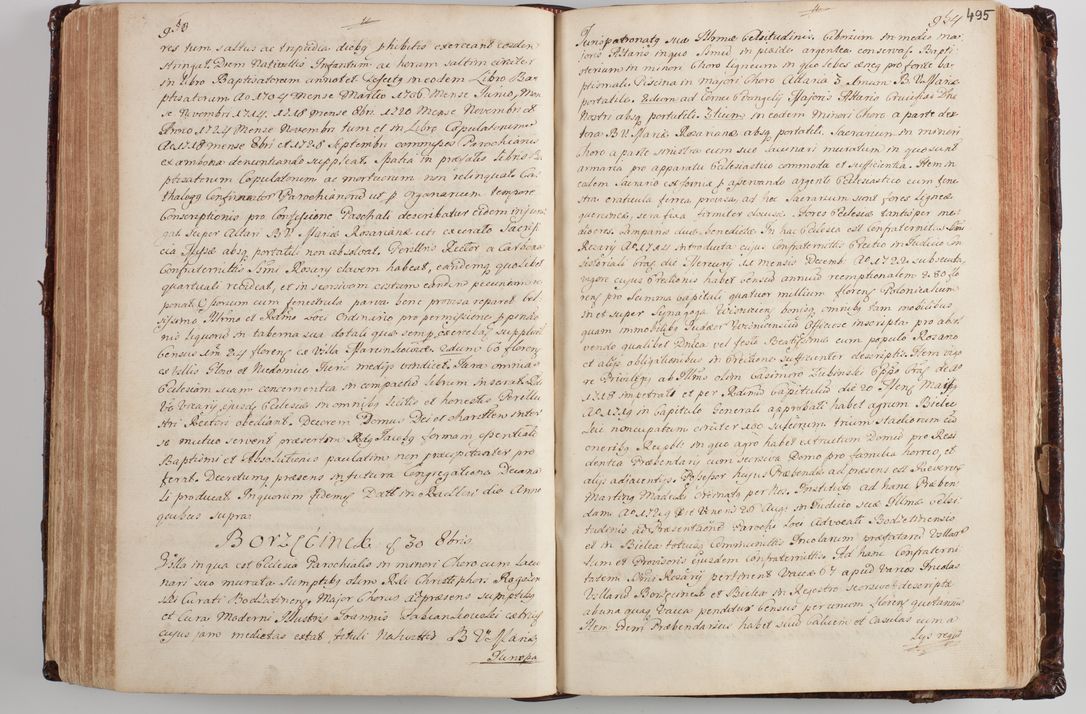 res tum saltus ac tripudia diebq phibitis exerceant eosdem
stringat. Diem Nativitts Infantium ac horam saltim circiter
in Libro Baptisatorum annotet. Defectq in eodem Libro Bap
ptisatorum Ao 1704 mense Martio 1706 Mense Junio, Men
se Novembri 1714. 1718 mense 8bri 1720 Mense Novembri et
Anno 1724 Mense Novembri tum et in Libro Copulatorum
Ao 1718 mense 8bri et 1728 Septembri commissos Parochianis
ex ambona denunciando suppleat. Spatia in præfatis Libris Ba
ptisatorum Copulatorum ac mortuorum non relinquat. Ca
thalogq Confirmator Parochianor ut p tempore
Conscriptionis pro Confessione Paschali describatur eidem injun
git. Super Altari B.V. Mariæ Rosarianæ uti execrato Sacrifi
cia Missæ absq portatili non absolvat. Perilltris Rector a Carbona
Confraternittis Ssmi Rosary clavem habeat, eandemq quolibet
quartuali reddeat, et in seorsivam cistam eandem pecuniam im
ponat. cum fenestrula parva bene provisa reparet. Cel
sissimo Illmo et Rdmo Loci Ordinario pro permissione ppende
nis liquoris in taberna sua dotali quæ semp exercebat supplicet
Census 24 floren ex Villa Marenkowice 2dum 60 floren
ex Villis Glno et Niedomice Iteris medijs vindicet. Jura omnia
Ecclesiam suam concernentia in compactum librum inserat.
Vicarij ejusdq Ecclesiæ in omnibq licitis et honestis Perillu
stri Rectori obediant. Decorem Domus Dei et charittem inter
se mutuo servent præsertim formam essentialē
Baptismi et Absolutionis paulatim non præcipitanter pro
ferat. Decretum præsens in futura Congregatione Decana
li producat. In quorum fidem Datt in Radlow die Anno
quibus supra.
Borzęcinek d 30 8bris
Villa in qua est Ecclesia Parochialis in minori Choro cum Lacu
nari suo murata Sumptibq olim Rdi Christophori Rogosin
ski Curati Bodzetinens, Major Chorus ad præsens sumptibq
et Cura Moderni Illustris Joannis Fabian Kowski extruitur
cujus jam medietas extat Tituli Nativittis B.V. Mariæ,
Jurispa
Jurispatronatq suæ Illmæ Celsitudinis. Ciborium in medio ma
joris Altaris in quo Ssmũ in pixide argentea conservaʒ. Bapti
sterium in minori Choro ligneum in quo lebes æneq pro fonte ba
ptismali. Piscina in majori Choro. Altaria 3. Imum B.V. Mariæ
portatile. 2dum ad Cornu Evangely Majoris Altaris Crucifixi Dni
Nostri absq portatili. 3tium in eodem minori Choro a parte dex
tera B.V. Mariæ Rosarianæ absq portatili. Sacrarium in minori
Choro a parte sinistra cum suo lacunari muratum in quo sunt
armaria pro apparatu Ecclesiastico commoda et sufficientia. Item in
eodem Sacrario est fornix p asservando argento Ecclesiastico cum fene
stra craticula ferrea provisa, ad hoc Sacrarium sunt fores ligneæ
quercinæ, sera fixa firmiter clausæ. Flores Ecclesiæ tantisper me
diocres. Campanæ duæ benedictæ. In hac Ecclesia est confraternitas Ssmi
Rosary Ao 1721 introducta cujus Confraternittis Erectio in Iudicio Con
sistoriali Crac die Mercury 11 Mensis Decemb. Ao 1722 subsecuta,
vigore cujus Erectionis habet censũ annuũ reemptionalem 280 flo
reng pro Summa capitali quatuor millium floreng Polonicalium
in et super Synagoga Wisnicien, bonisq omnibq tam mobilibus
quam immobilibq Judæor Wisniciensiũ inscripta pro absol
vendo qualibet Dnica vel festo Beatissimæ cum populo Rosario
et alijs obligationibus in Erectione sufficienter descriptis. Item vigo
re Privilegij ab Illmo olim Casimiro Łubinski Eppõ Crac de Ao
1718 impetrati et per Rdimũ Capitulũ die 20 Mens Maij
Ao 1719 in Capitulo Generali approbati habet agrum Bielce
Leśi noncupatum circiter 100 sulcorum trium stadiorum cũ
oneribq Recepti in quo agro habet extructum Domũ pro Resi
dentia Præbendarij cum seorsiva Domo pro familia horreo, et
alijs adiacentijs. Possessor hujus Præbendæ ad præsens est Rdus
Martinq Madeyski Crematq per Nos. Institutq ad hanc Præben
dam Ao 1729 die Veneris 26 Augi in Iudicio suæ Illmæ Celsi
tudinis ad Præsentaõnẽ Parochi Loci Advocati Bodzetinensis
et in Bielcza totius Communittis Incolarum præfatarũ Villar
tum et Provisoris ejusdem confraternittis. Ad hanc Confraterni
tatem Ssmi Rosary pertinent Vaccæ 67 apud varios Incolas
Villarũ Borzęcinek et Bielcza in Regestro seorsivo descriptæ
ab una quaq Vacca penditur Census per unum floreng quotannis
Item Præbendarius habet suũ calicem et casulas cum a
lijs requi
950
954
495